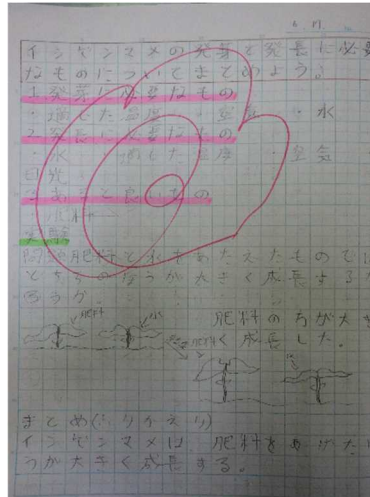 6月
インゲンマメの発芽と発長に必要
なものについてまとめよう。
1発芽に必要なもの
・適した温度 ・空気 ・水
2発長に必要なもの
・水 ・適した温度 ・空気
日光
3あると良いもの
肥料
実験
肥料と水をあたえたもので
どちらのほうが大きく成長する
だろうか。
肥料 水
肥料のちが大き
く成長した。
肥料
まとめ(ふりかえり)
インゲンマメは、肥料をあげたほ
うが大きく成長する。